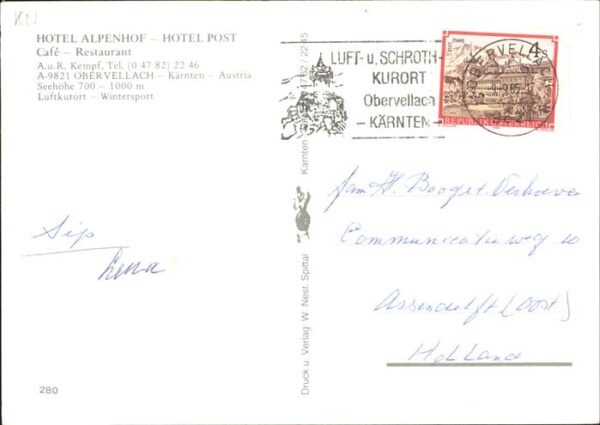 KN
HOTEL ALPENHOF – HOTEL POST
Café – Restaurant
A.u.R. Kempf, Tel. (0 47 82) 22 46
A-9821 OBERVELLACH – Kärnten – Austria
Seehöhe 700 – 1000 m
Luftkurort – Wintersport
LUFT- u. SCHROTH-
KURORT
Obervellach
– KÄRNTEN –
STIFT STAMS
4 S
REPUBLIK ÖSTERREICH
OBERVELLACH
Fam H. Baaget. Verhoeven
Communicatieweg 10
Assendelft (Oost)
Holland
Sip
Lena
Druck u. Verlag W. Nest, Spittal
Kärnten
280